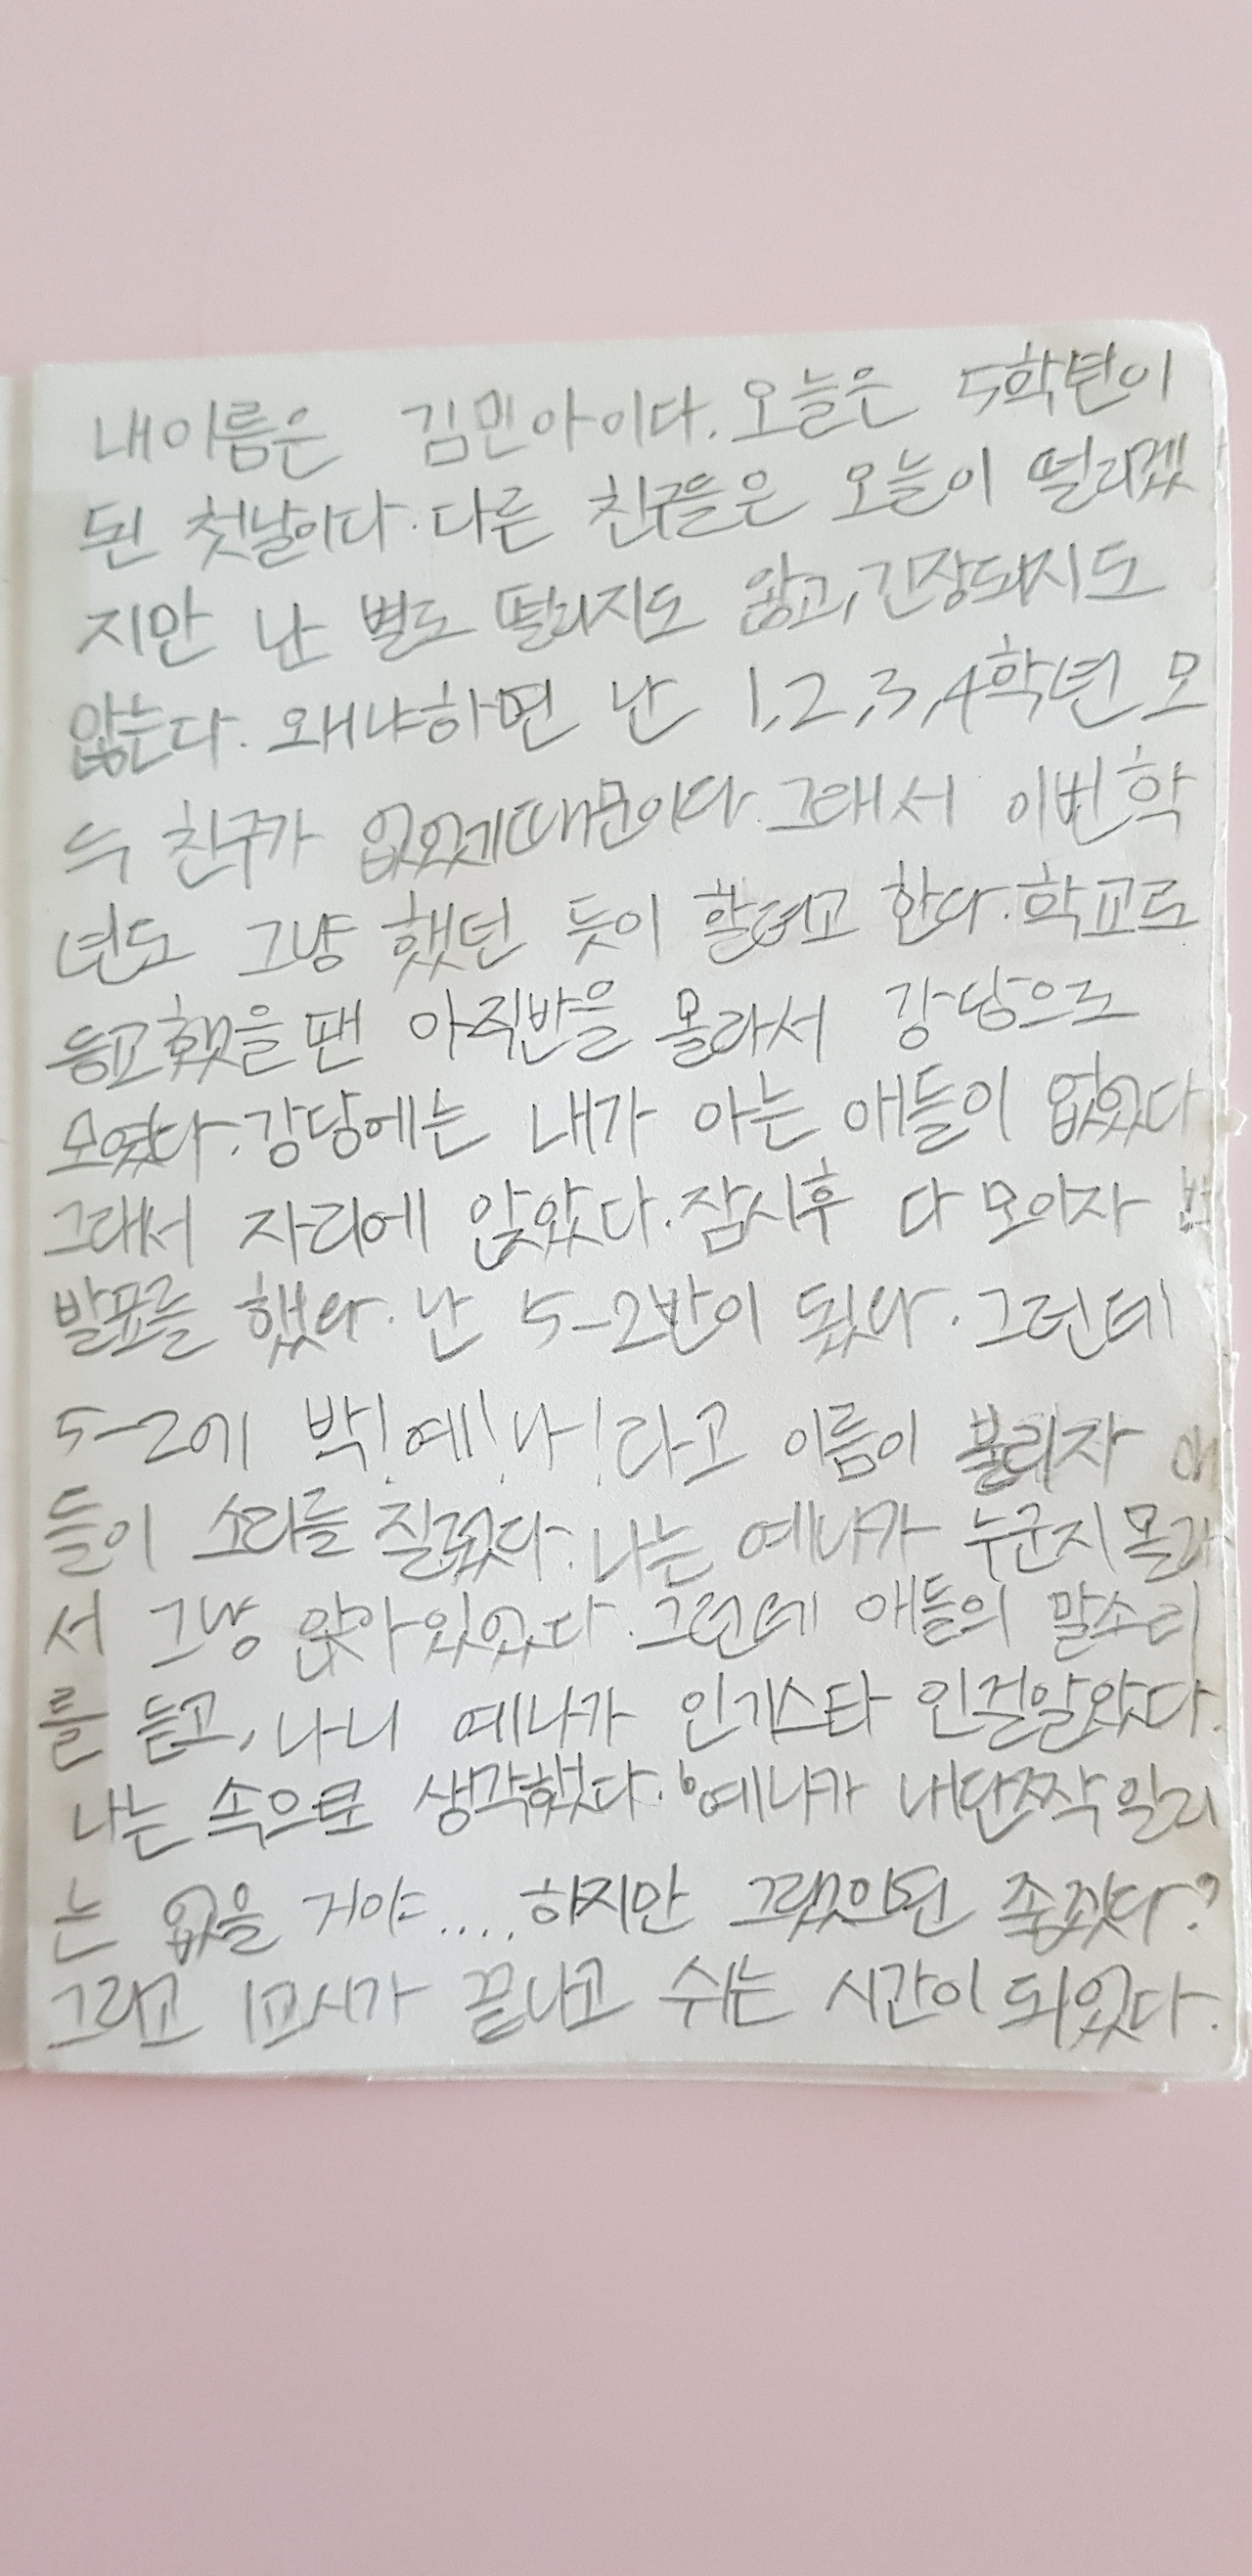 내이름은 김민아이다. 오늘은 5학년이
된 첫날이다. 다른 친구들은 오늘이 떨리겠
지만 난 별로 떨리지도 않고, 긴장되지도
않는다. 왜냐하면 난 1,2,3,4학년 모
두 친구가 없었게때문이다. 그래서 이번학
년도 그냥 했던 듯이 할려고 한다. 학교로
등교했을땐 아직반을 몰라서 강당으로
모였다. 강당에는 내가 아는 애들이 없었다
그래서 자리에 앉았다. 잠시후 다 모이자 반
발표를 했다. 난 5-2반이 됬다. 그런데
5-2에 박!예!나!라고 이름이 불리자 애
들이 소리를 질렀다. 나는 예나가 누군지 몰라
서 그냥 앉아있었다. 그런데 애들의 말소리
를 듣고, 나니 예나가 인기스타 인걸알았다.
나는 속으로 생각했다. '예나가 내단짝 일리
는 없을 거야.... 하지만 그랬으면 좋겠다'
그리고 1교시가 끝나고 쉬는 시간이 되었다.